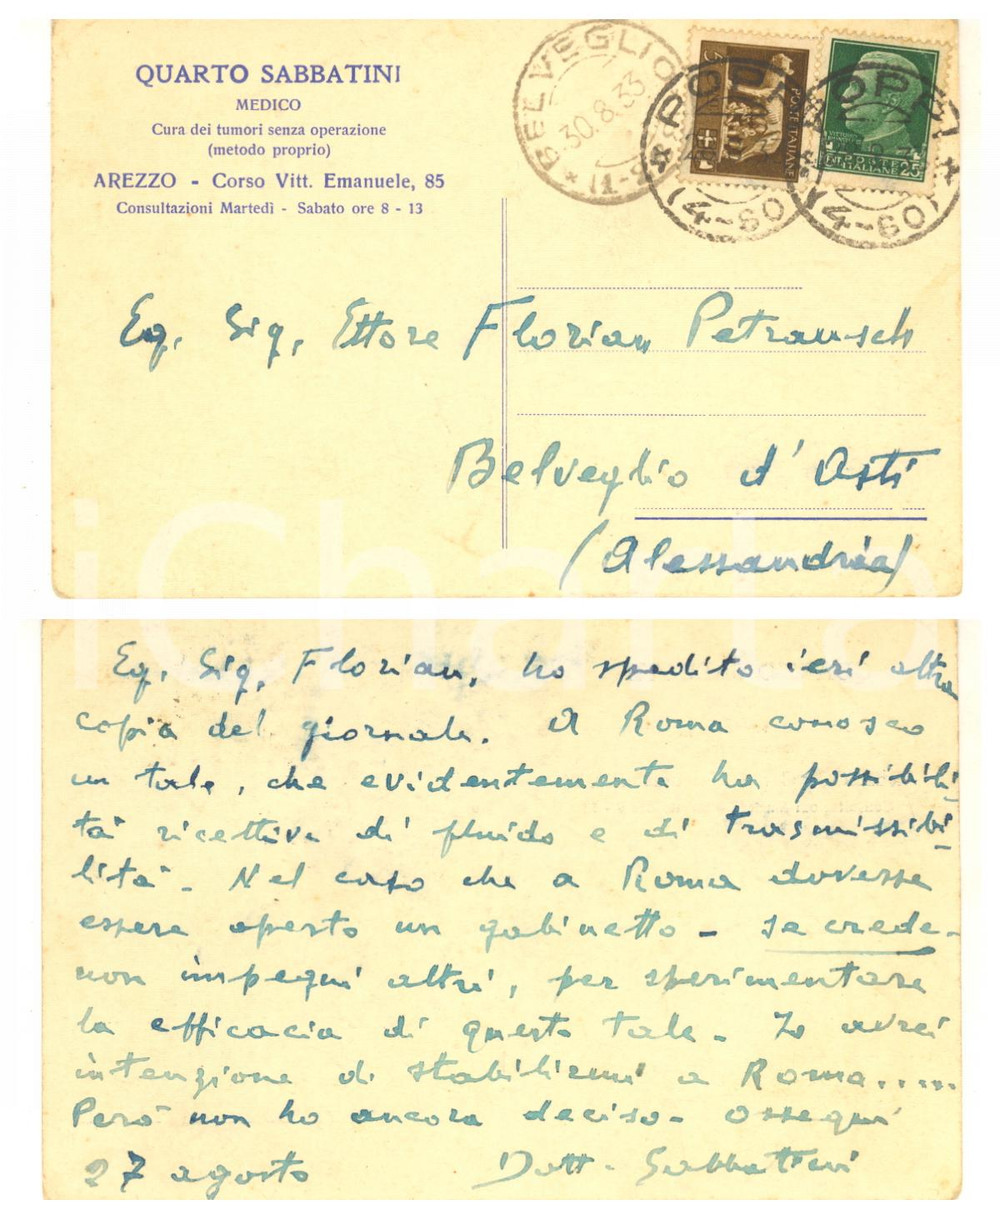 QUARTO SABBATINI
MEDICO
Cura dei tumori senza operazione
(metodo proprio)
AREZZO - Corso Vitt. Emanuele, 85
Consultazioni Martedì - Sabato ore 8 - 13
BELVEGLIO
30.8.33
(4-60)
(4-60)
POSTE ITALIANE
POSTE
ITALIANE
25
Eg. Sig. Ettore Florian Petrausch
Belveglio d'Asti
(Alessandria)
iCharta
Eg. Sig. Florian, ho spedito ieri altra
copia del giornale. A Roma conosco
un tale, che evidentemente ha possibili-
tà ricettiva di fluido e di trasmissibi-
lità. Nel caso che a Roma dovesse
essere aperto un gabinetto - se crede -
non impegni altri, per sperimentare
la efficacia di questo tale. Io avrei
intenzione di stabilirmi a Roma.....
Però non ho ancora deciso. Ossequi
27 agosto Dott. Sabbatini